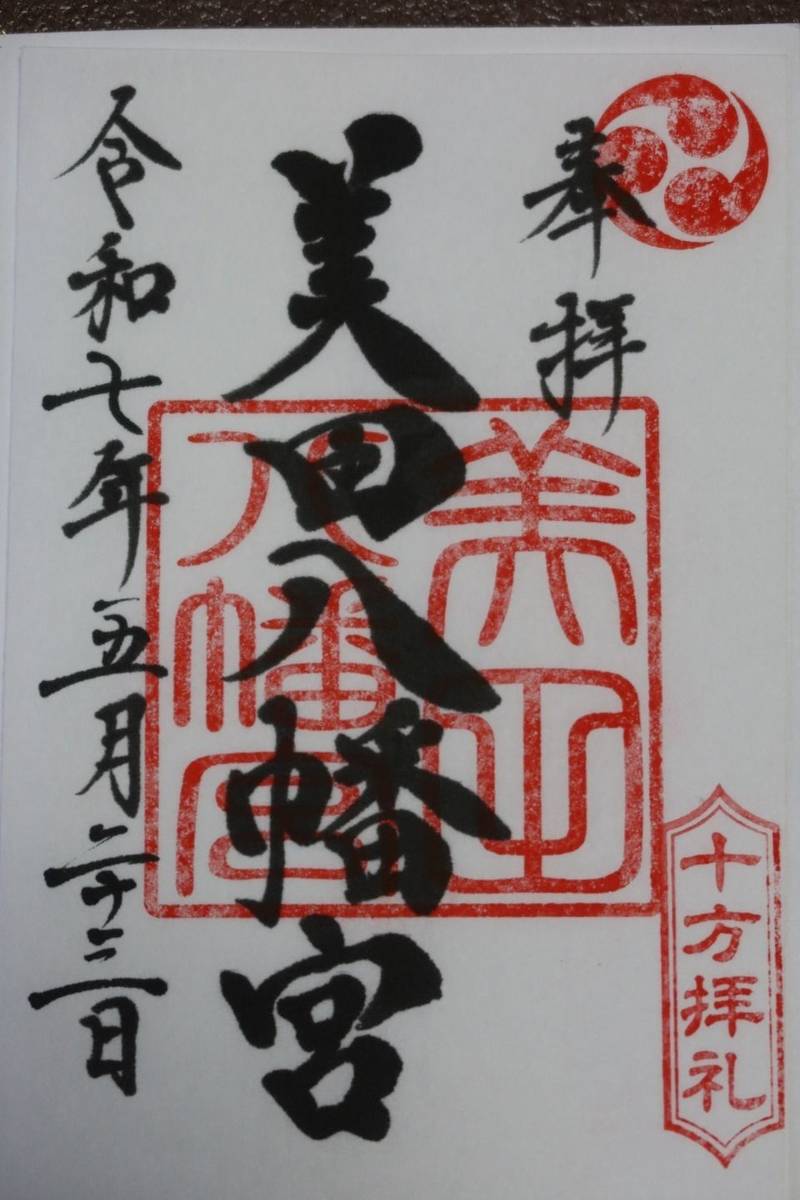 奉拝
美田八幡宮
令和七年五月二十三日
美田
八幡宮
十方拝礼